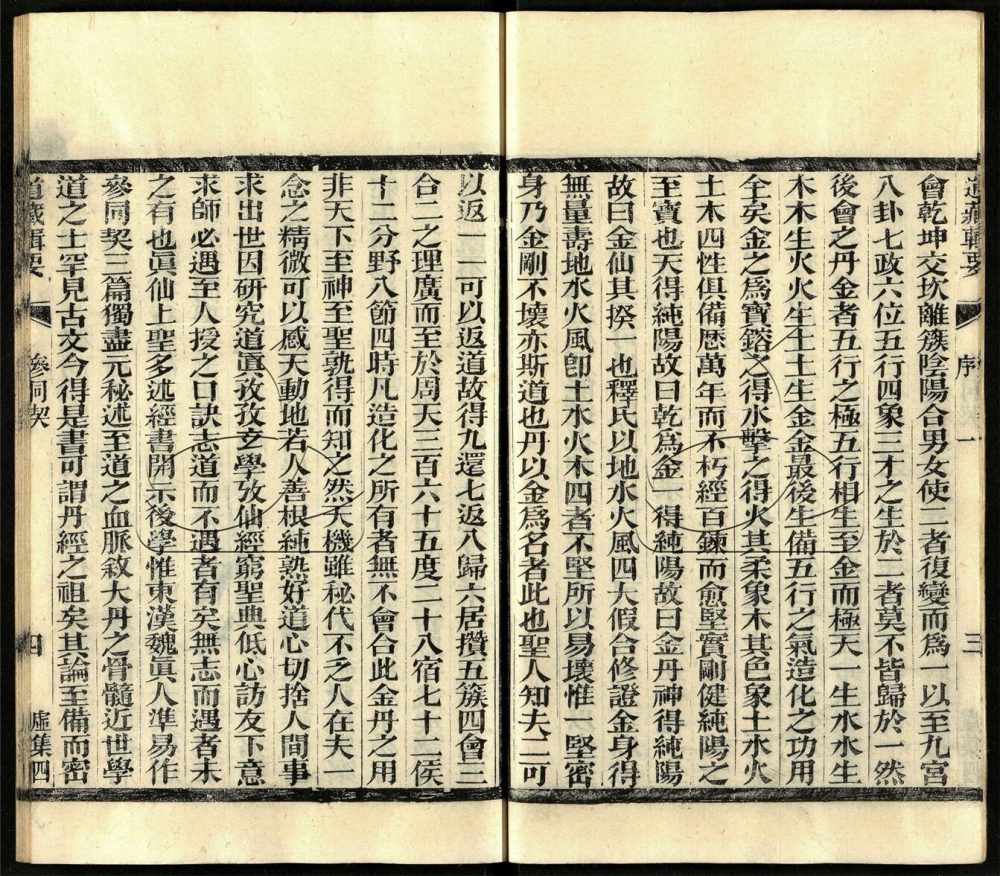 道藏輯要
序
一
三
會乾坤交坎離簇陰陽合男女使二者復變而爲一以至九宮
八卦七政六位五行四象三才之生於二者莫不皆歸於一然
後會之丹金者五行之極五行相生至金而極天一生水水生
木木生火火生土土生金金最後生備五行之氣造化之功用
全矣金之爲寳鎔之得水擊之得火其柔象木其色象土水火
土木四性俱備歷萬年而不朽經百鍊而愈堅實剛健純陽之
至寳也天得純陽故曰乾爲金一得純陽故曰金丹神得純陽
故曰金仙其揆一也釋氏以地水火風四大假合修證金身得
無量壽地水火風卽土水火木四者不堅所以易壞惟一堅密
身乃金剛不壞亦斯道也丹以金爲名者此也聖人知夫二可
以返一一可以返道故得九還七返八歸六居攢五簇四會三
合二之理廣而至於周天三百六十五度二十八宿七十二侯
十二分野八節四時凡造化之所有者無不會合此金丹之用
非天下至神至聖孰得而知之然天機雖秘代不之人在夫一
念之精微可以感天動地若人善根純熟好道心切捨人間事
求出世因研究道眞孜孜玄學攷仙經窮聖典低心訪友下意
求師必遇至人授之口訣志道而不遇者有矣無志而遇者未
之有也眞仙上聖多述經書開示後學惟東漢魏眞人準易作
參同契三篇獨盡元秘述至道之血脈敘大丹之骨髓近世學
道之士罕見古文今得是書可謂丹經之祖矣其論至備而密
道藏輯要
參同契
四
虛集四